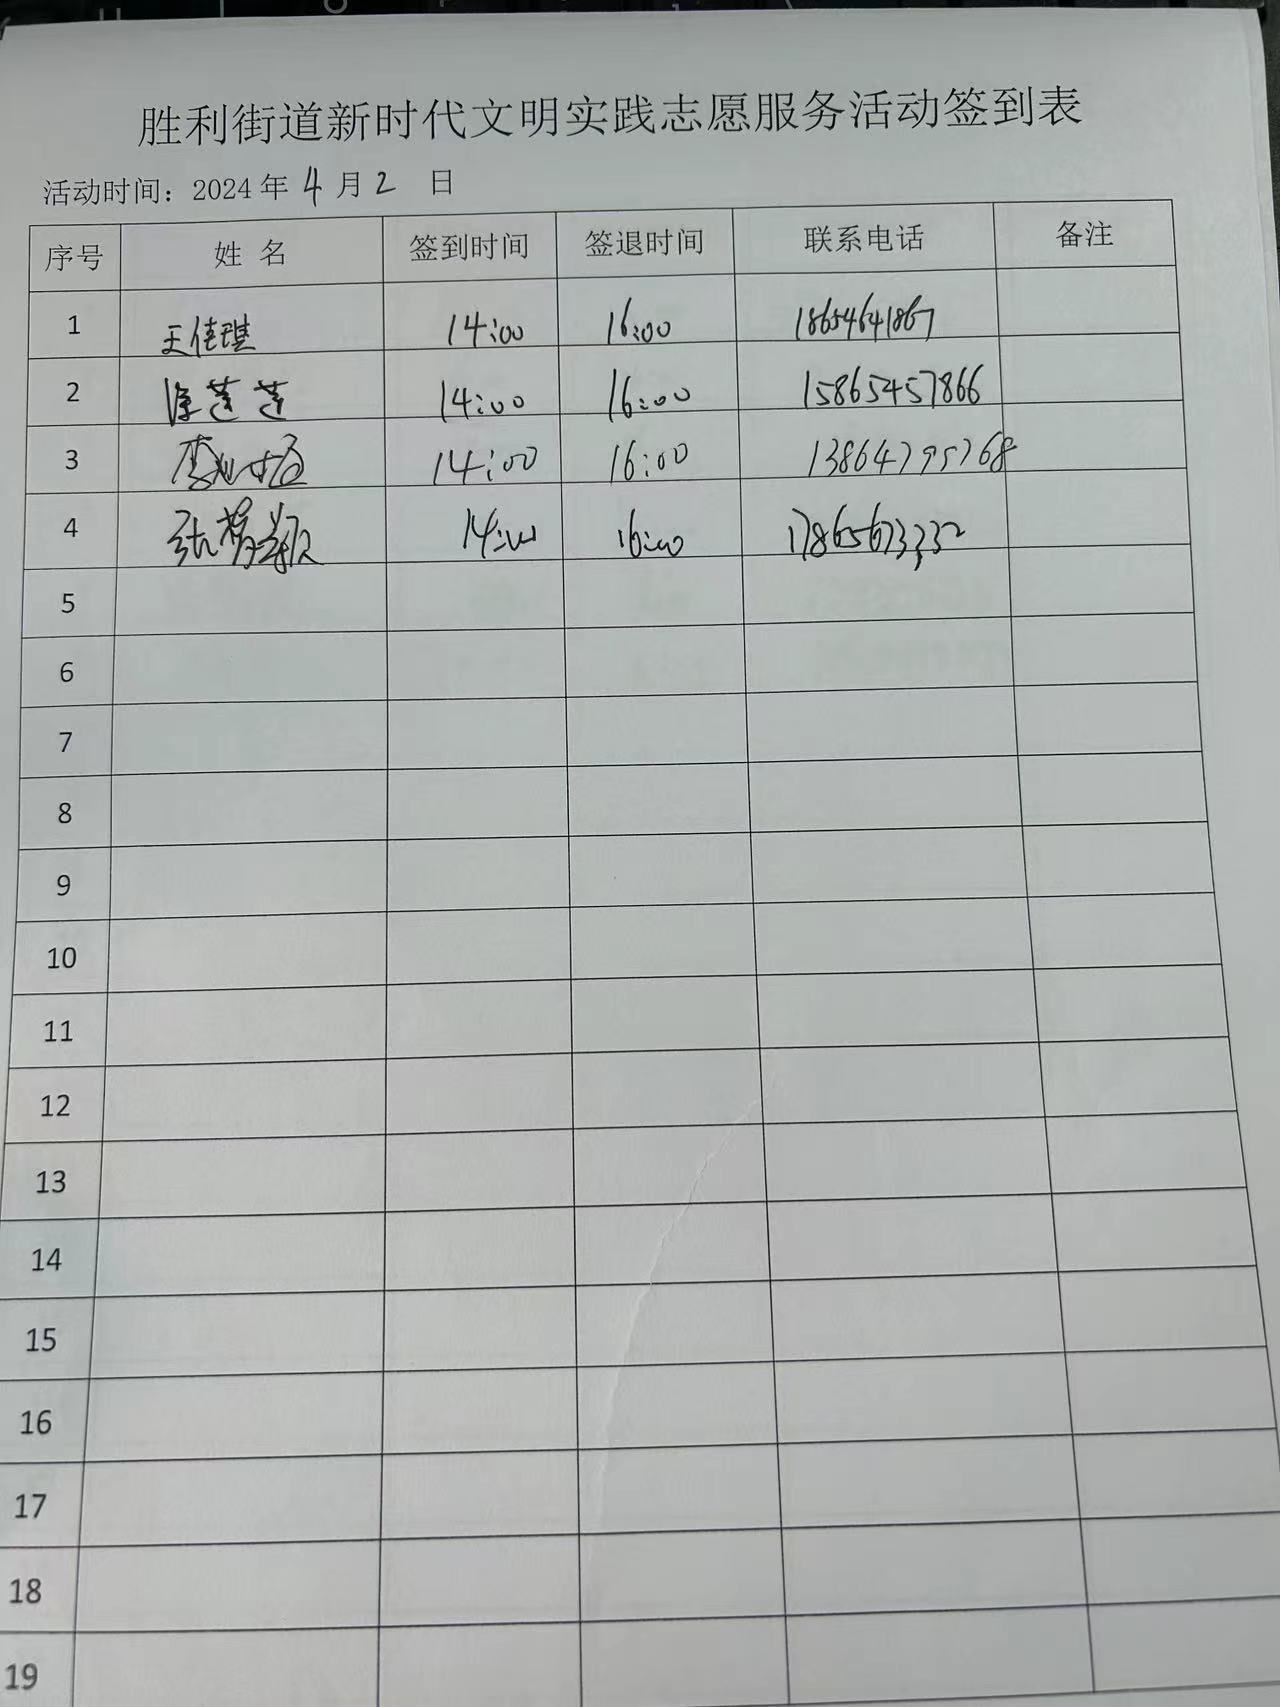 胜利街道新时代文明实践志愿服务活动签到表
活动时间：2024年 4 月 2 日
序号 姓 名 签到时间 签退时间 联系电话 备注
1 王佳琪 14:00 16:00 18654641867
2 徐莲莲 14:00 16:00 15865457866
3 14:00 16:00 13864795768
4 14:00 16:00 17865673332
5
6
7
8
9
10
11
12
13
14
15
16
17
18
19